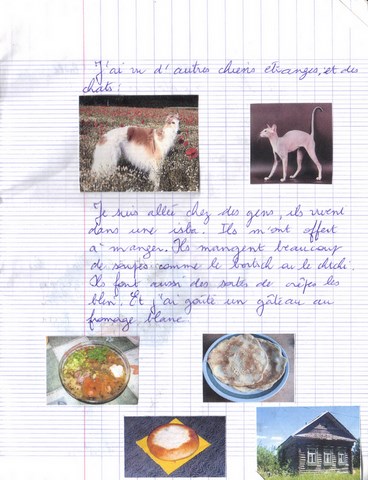 J'ai vu d'autres chiens étranges, et des
chats :
Je suis allée chez des gens, ils vivent
dans une isba. Ils m'ont offert
à manger. Ils mangent beaucoup
de soupes comme le bortsch ou le chchi.
Ils font aussi des sortes de crêpes les
blin. Et j'ai goûté un gâteau au
fromage blanc.